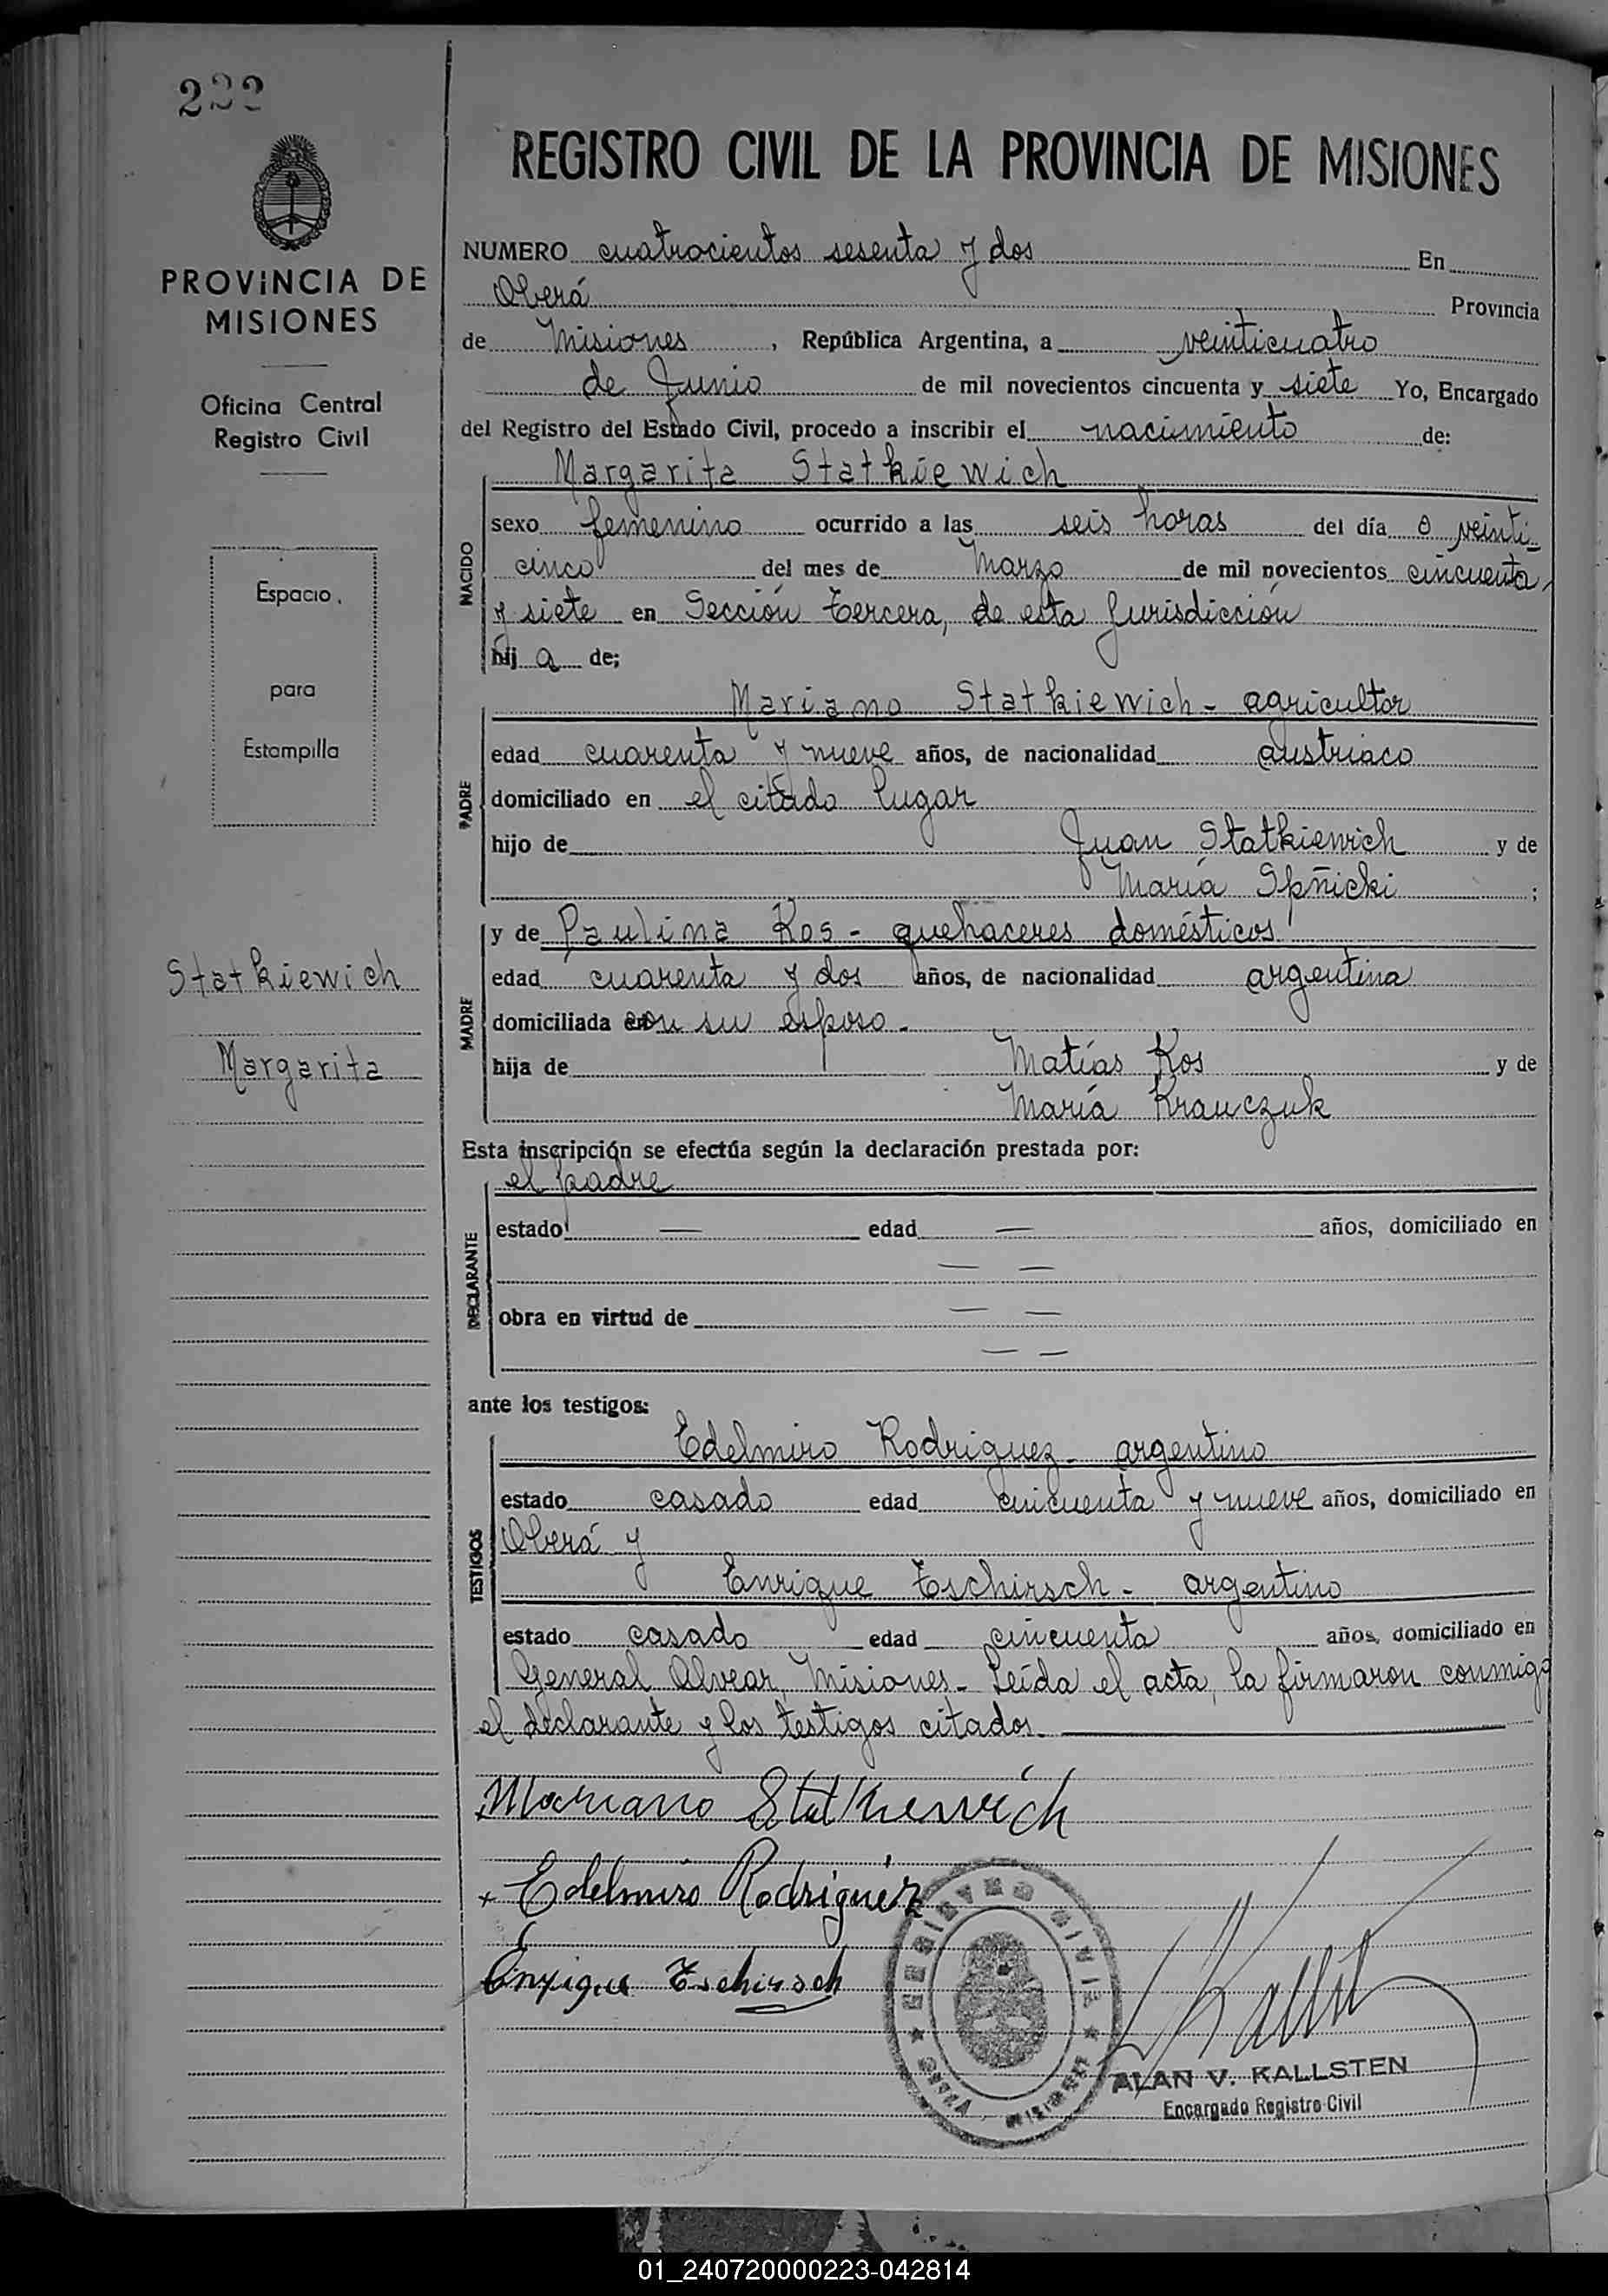 222
PROVINCIA DE
MISIONES
Oficina Central
Registro Civil
Espacio
para
Estampilla
Statkiewich
Margarita
REGISTRO CIVIL DE LA PROVINCIA DE MISIONES
NUMERO cuatrocientos sesenta y dos En
Oberá Provincia
de Misiones, República Argentina, a veinticuatro
de Junio de mil novecientos cincuenta y siete Yo, Encargado
del Registro del Estado Civil, procedo a inscribir el nacimiento de:
Margarita Statkiewich
NACIDO
sexo femenino ocurrido a las seis horas del día veinti-
cinco del mes de Marzo de mil novecientos cincuenta
y siete en Sección tercera, de esta Jurisdicción
hija de;
Mariano Statkiewich - agricultor
PADRE
edad cuarenta y nueve años, de nacionalidad austriaco
domiciliado en el citado lugar
hijo de Juan Statkiewich y de
María ;
y de Paulina Kos - quehaceres domésticos
MADRE
edad cuarenta y dos años, de nacionalidad argentina
domiciliada con su esposo.
hija de Matías Kos y de
María Krauczuk
Esta inscripción se efectúa según la declaración prestada por:
el padre
DECLARANTE
estado — edad — años, domiciliado en
— —
obra en virtud de — —
— —
ante los testigos:
Edelmiro Rodriguez - argentino
TESTIGOS
estado casado edad cincuenta y nueve años, domiciliado en
Oberá y
Enrique Tschirsch - argentino
estado casado edad cincuenta años, domiciliado en
General Alvear, Misiones. Leída el acta, la firmaron conmigo
el declarante y los testigos citados.
Mariano Statkiewich
Edelmiro Rodriguez
Enrique Tschirsch
REGISTRO CIVIL
OBERA - MISIONES
Kallsten
ALAN V. KALLSTEN
Encargado Registro Civil
01_240720000223-042814